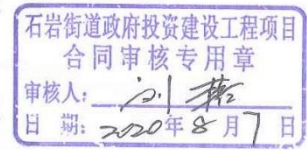 石岩街道政府投资建设工程项目
合同审核专用章
审核人：刘
日 期：2020年8月7日